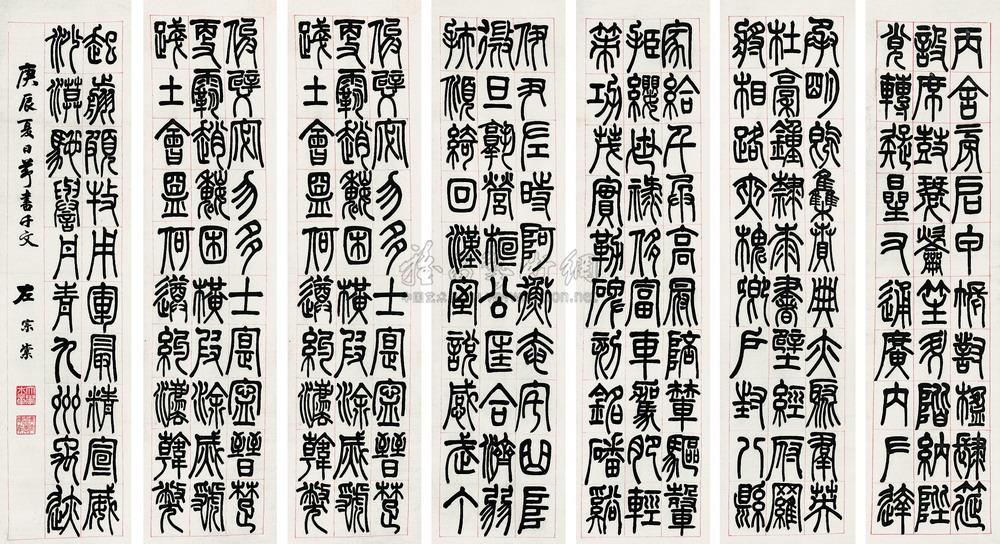 丙舍旁启甲帳對楹肆筵
設席鼓瑟吹笙升階納陛
弁轉疑星右通廣內左達
承明既集墳典亦聚羣英
杜稾鍾隸漆書壁經府羅
將相路俠槐卿戶封八縣
家給千兵高冠陪輦驅轂
振纓世祿侈富車駕肥輕
策功茂實勒碑刻銘磻溪
伊尹佐時阿衡奄宅曲阜
微旦孰營桓公匡合濟弱
扶傾綺回漢惠說感武丁
俊乂密勿多士寔寧晉楚
更霸趙魏困橫假途滅虢
踐土會盟何遵約法韓弊
俊乂密勿多士寔寧晉楚
更霸趙魏困橫假途滅虢
踐土會盟何遵約法韓弊
起翦頗牧用軍最精宣威
沙漠馳譽丹青九州禹迹
庚辰夏日節書千文
左宗棠